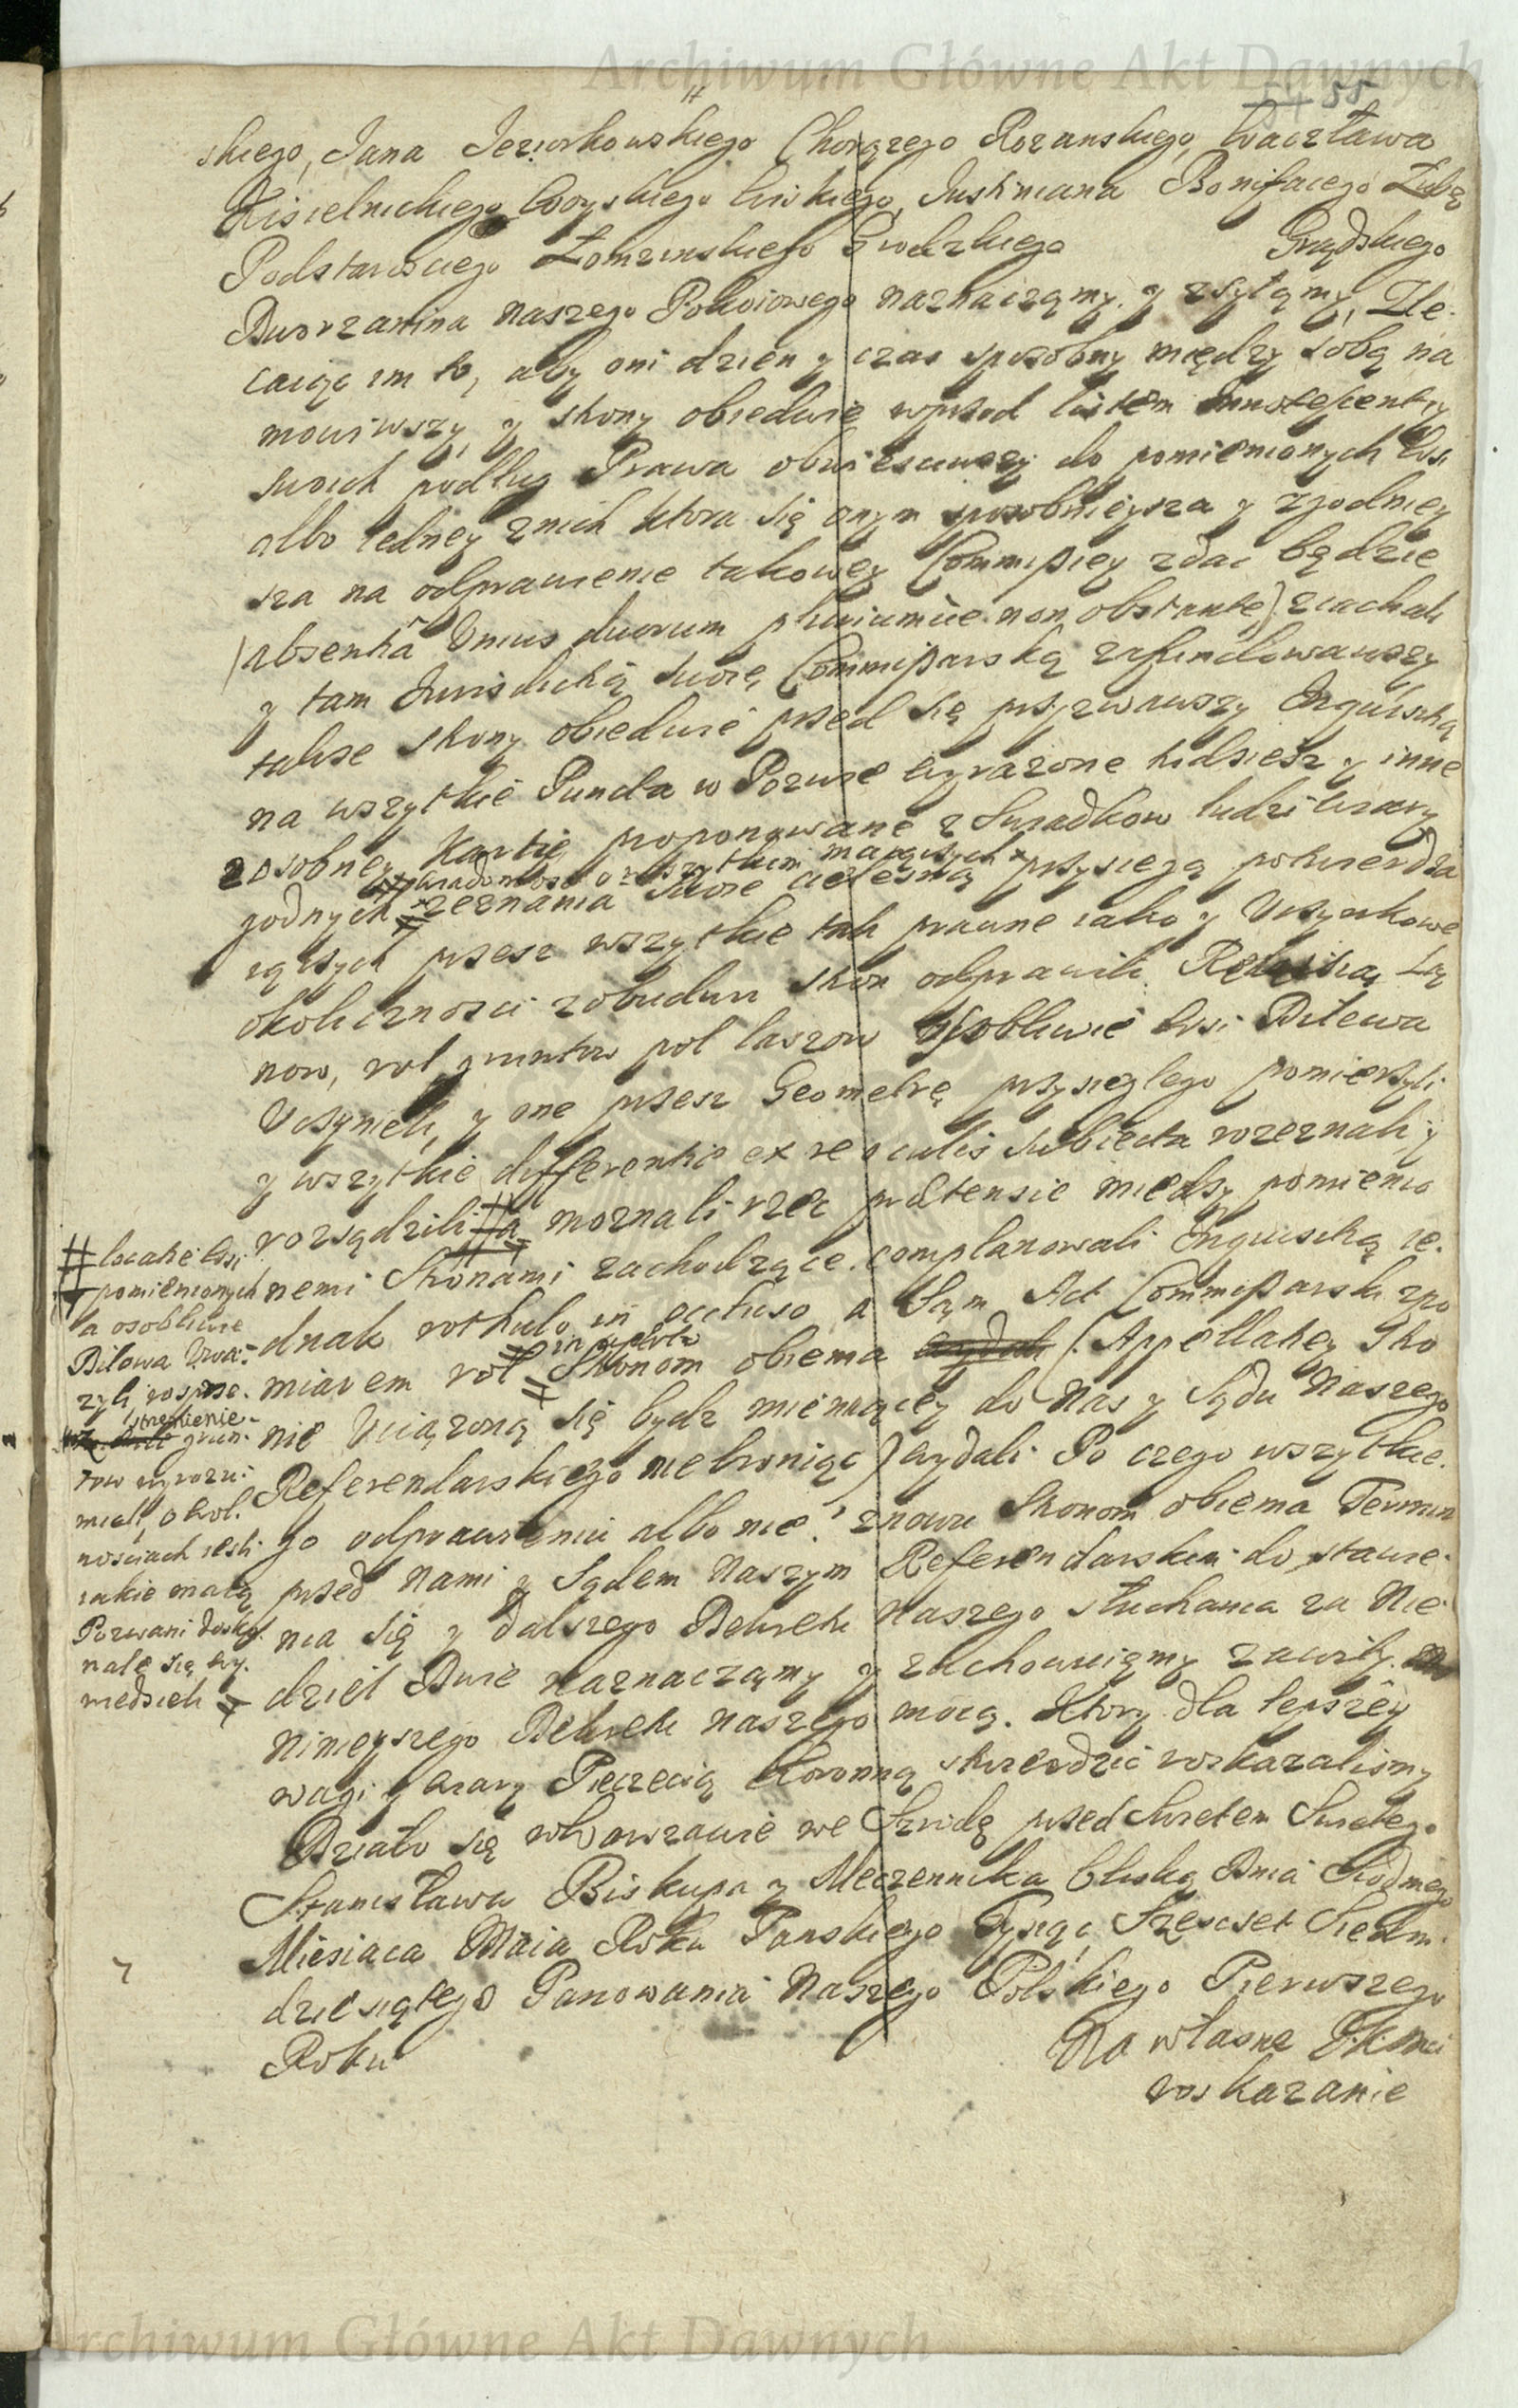 Archiwum Główne Akt Dawnych
54 55
skiego, Jana Jeziorkowskiego Chorązego Rozanskiego, Wacztawa
Kisielnickiego Woyskiego Wiskiego, Justiniana Bonifacego Zabę
Podstarosciego Łomzinskiego Grodzkiego Grądzkiego
Dworzanina naszego Pokoiowego naznaczamy y zsyłamy, Zle-
caiąc im to, aby oni dzien y czas sposobny między sobą na
mowiwszy, y strony obiedwie wprzod listem Innotescentiy
swoich podług Prawa obwiesciwszy do pomienionych Wsi
albo iedney znich ktora się onym sposobnieysza y zgodniey
sza na odprawienie takowey Commissiey zdac będzie
(absentiâ Unius duorum pluriumue non obstante) ziachali
y tam Jurisdictią swoię Commissarską zafundowawszy
takze strony obiedwie przed się przyzwawszy Inquisitią
na wszytkie Puncta w Pozwie wyrazone tudziesz y inne
z osobney Kartie proponowane z Swiadkow ludzi wiary
# wiadomosc o wszytkim maiących
godnych # zeznania swoie cielesną przysięgą potwierdza
iących przesz wszytkie tak prawne iako y Uczynkowe
okolicznosci z obudwu stron odprawili. Rewisią Ła
now, rol gruntow pol lassow osobliwie Wsi Bilewa
Uczynili, y one przesz Geometrę przysięgłego pomierzyli
y wszytkie differentie ex re oculis subiecta rozeznali y
rozsądzili # a moznali rzec praetensie między pomienio
nemi Stronami zachodzące complanowali Inquisitią ie-
dnak rothulo in occluso a Sąm Act Commissarski zpo
in aperto
miarem rol = Stronom obiema wydali (Appellatiey Stro
nie Uciązoną się bydz mieniącey do Nas y Sądu Naszego
Referendarskiego niebroniąc) wydali Po czego wszytkie-
go odprawieniu albo nie! znowu Stronom obiema Termin
przed nami y Sądem naszym Referendarskim do stawie-
nia się y dalszego Dekretu naszego słuchania za Nie-
dziel Dwie naznaczamy y zachowuięmy zawity
ninieyszego Dekretu naszego mocą. Ktory dla lepszêy
wagi y wiary Pieczęcią Koronną stwierdzic roskazalismy
Działo się w Warzawie we Szrodę przed Swietem Swietego
Stanisława Biskupa y Męczennika bliską Dnia Siodmego
Miesiaca Maia Roku Panskiego Tysiąc Szescset Siedm-
dziesiątego Panowania Naszego Polskiego Pierwszego
Roku
Na własne J.K.Mci
roskazanie
# locatie Wsi
pomienionych
a osobliwie
Bilowa Uwa-
zyli,
grun-
tow wyrozu-
mieli, o okol.
nosciach iesli
iakie maią
Pozwani dosko-
nale się wy-
wiedzieli #
Archiwum Główne Akt Dawnych